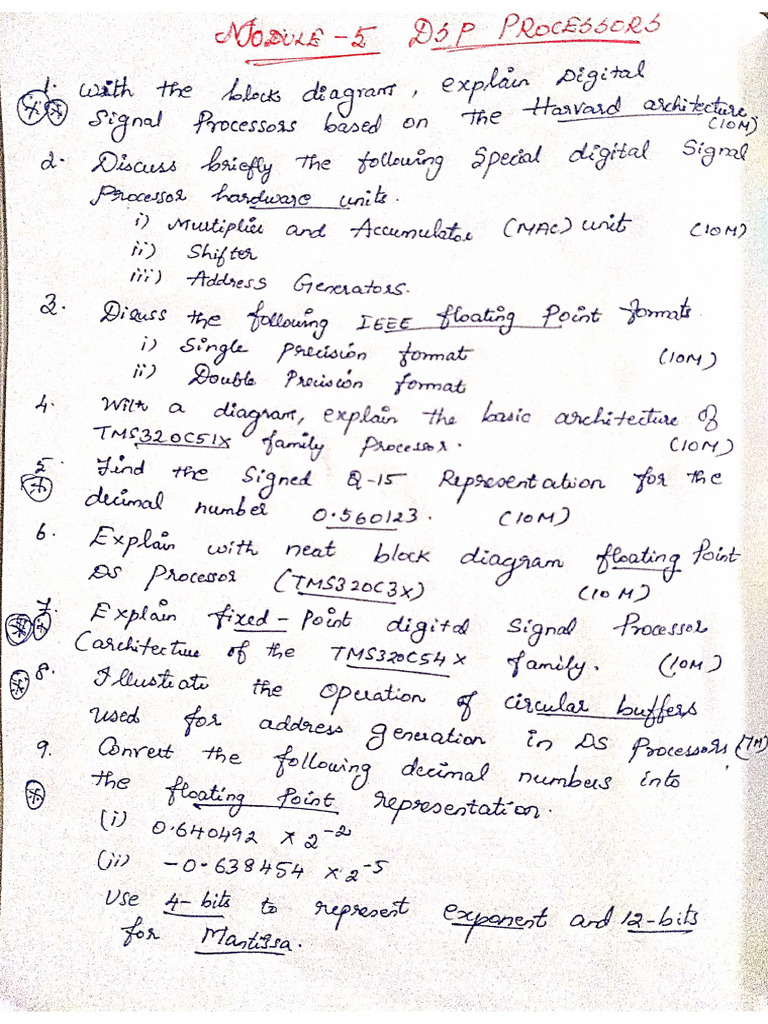 MODULE-5 DSP PROCESSORS
1. With the block diagram, explain Digital
Signal Processors based on the Harvard architecture.
(10M)
2. Discuss briefly the following Special digital Signal
Processor hardware units.
i) Multiplier and Accumulator (MAC) unit (10M)
ii) Shifter
iii) Address Generators.
3. Dicuss the following IEEE floating Point formats.
i) Single Precision format (10M)
ii) Double Precision format
4. With a diagram, explain the basic architecture of
TMS320C51X family Processor. (10M)
5. Find the Signed Q-15 Representation for the
decimal number 0.560123. (10M)
6. Explain with neat block diagram floating Point
DS Processor (TMS320C3X) (10M)
7. Explain fixed-Point digital Signal Processor
Carchitecture of the TMS320C54X family. (10M)
8. Illustrate the Operation of circular buffers
used for address generation in DS Processors (7M)
9. Convert the following decimal numbers into
the floating Point representation.
(i) 0.640492 x 2^-2
(ii) -0.638454 x 2^-5
Use 4-bits to represent exponent and 12-bits
for Mantissa.